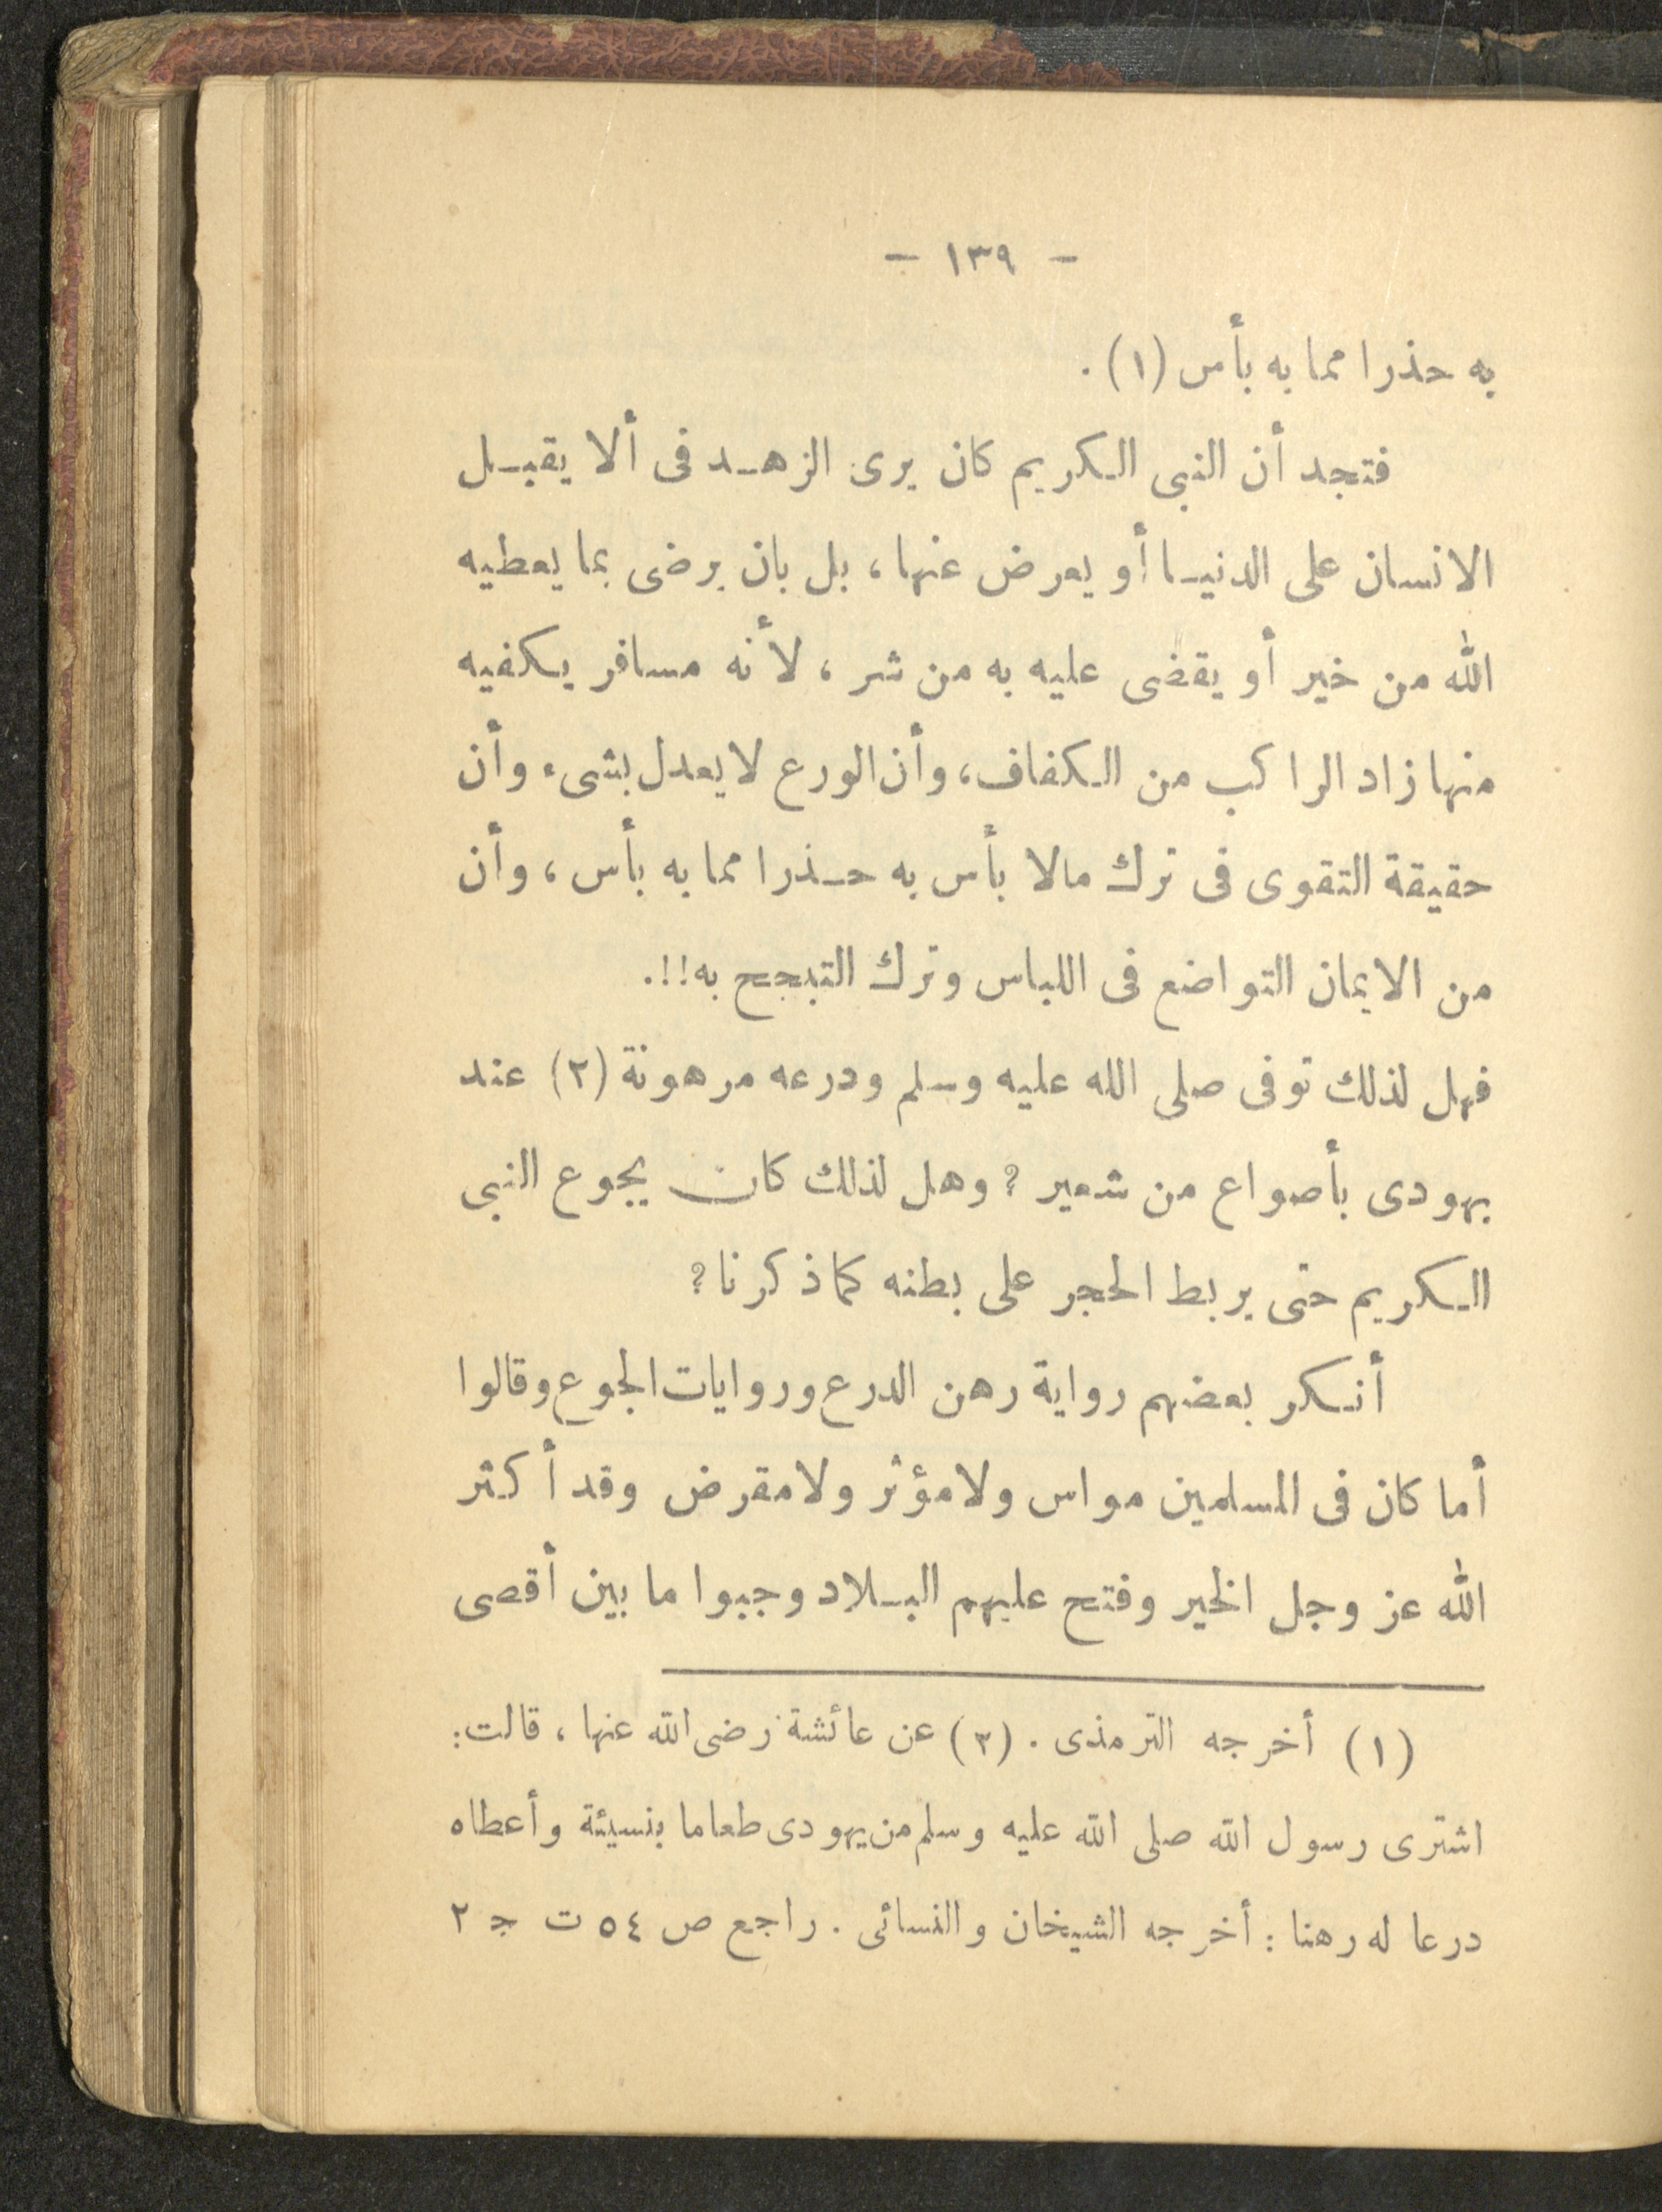 - ١٣٩ -
به حذرا مما به بأس (١) .
فتجد أن النبى الكريم كان يرى الزهد فى ألا يقبل
الانسان على الدنيا أو يعرض عنها ، بل بان يرضى بما يعطيه
الله من خير أو يقضى عليه به من شر ، لأنه مسافر يكفيه
منها زاد الراكب من الكفاف ، وأن الورع لا يعدل بشىء وأن
حقيقة التقوى فى ترك مالا بأس به حذرا مما به بأس ، وأن
من الايمان التواضع فى اللباس وترك التبجح به !! .
فهل لذلك توفى صلى الله عليه وسلم ودرعه مرهونة (٢) عند
يهودى بأصواع من شعير ؟ وهل لذلك كان يجوع النبى
الكريم حتى يربط الحجر على بطنه كما ذكرنا ؟
أنكر بعضهم رواية رهن الدرع وروايات الجوع وقالوا
أما كان فى المسلمين مواس ولا مؤثر ولا مقرض وقد أكثر
الله عز وجل الخير وفتح عليهم البلاد وجبوا ما بين أقصى
(١) أخرجه الترمذى . (٢) عن عائشة رضى الله عنها ، قالت :
اشترى رسول الله صلى الله عليه وسلم من يهودى طعاما بنسيئة وأعطاه
درعا له رهنا : أخرجه الشيخان والنسائى . راجع ص ٥٤ ت ج ٢